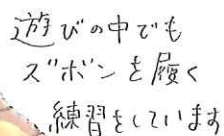 遊びの中でも
ズボンを履く
練習をしています